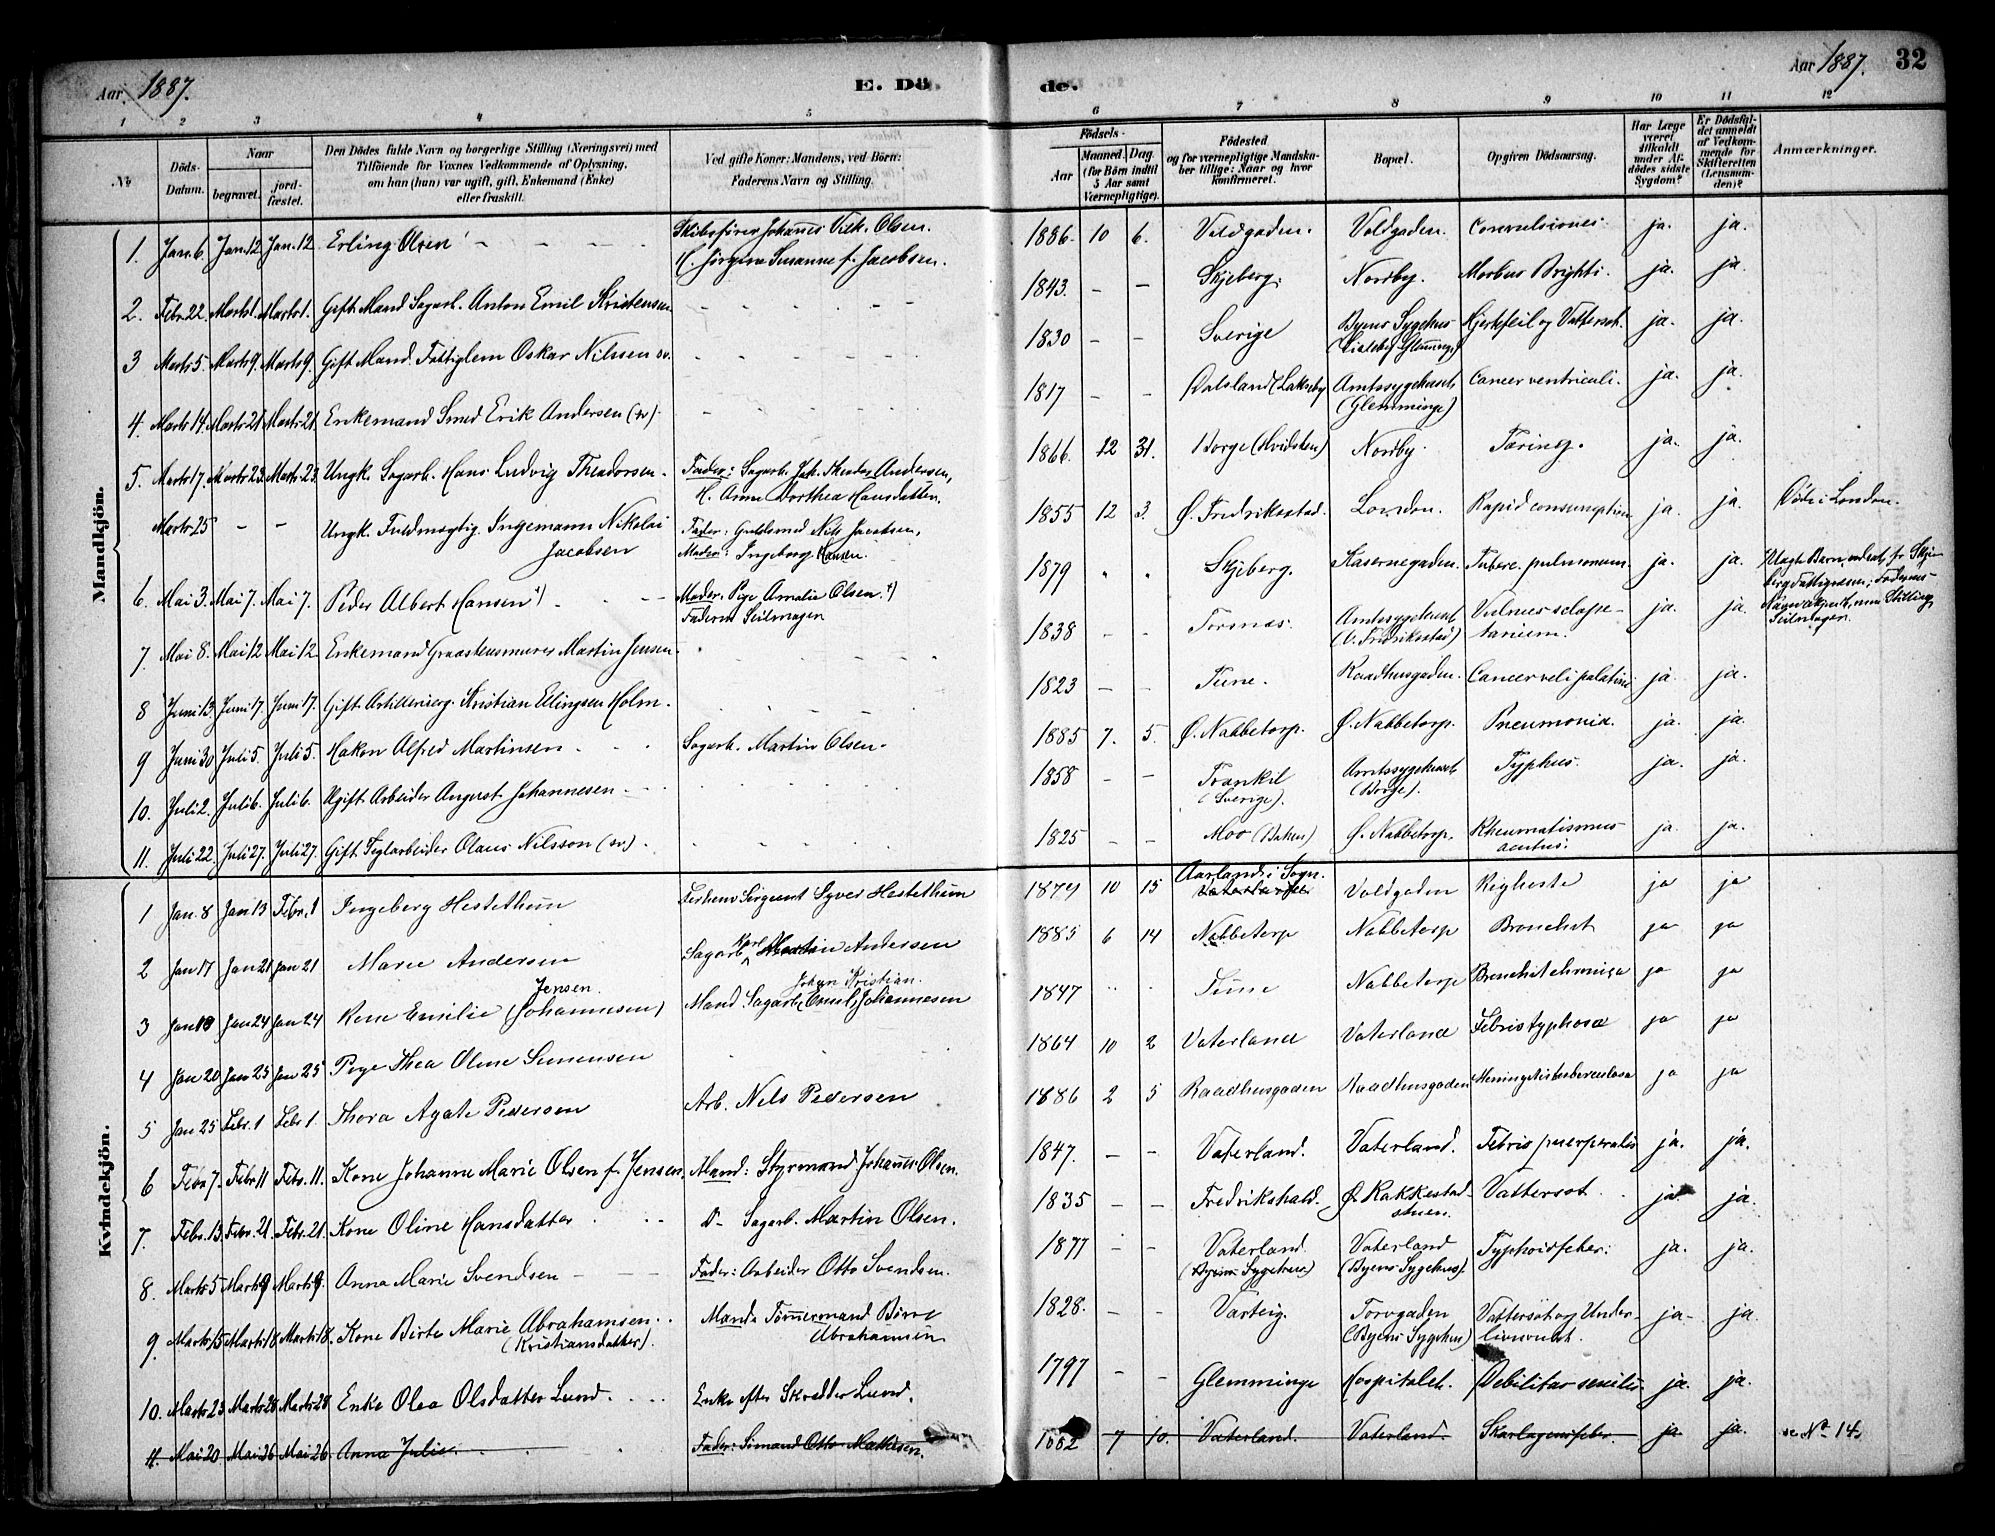 Aar 1887.
E. Dö
de.
Aar 1887.
32
1 2 3 4 5
6 7 8 9 10 11 12
No
Döds-Datum.
Naar
begravet.
jord-fæstet.
Den Dödes fulde Navn og borgerlige Stilling (Næringsvei) med
Tilföiende for Voxnes Vedkommende af Oplysning,
om han (hun) var ugift, gift, Enkemand (Enke)
eller fraskilt.
Ved gifte Koner: Mandens, ved Börn:
Faderens Navn og Stilling.
Födsels-
Aar
Maaned. Dag.
(for Börn indtil
5 Aar samt
Værnepligtige).
Födested
og for værnepligtige Mandska-
ber tillige: Naar og hvor
konfirmeret.
Bopæl.
Opgiven Dödsaarsag.
Har Læge
været
tilkaldt
under Af-
dödes sidste
Sygdom?
Er Dödsfal-
det anmeldt
af Vedkom-
mende for
Skifteretten
(Lensman-
den)?
Anmærkninger.
Mandkjön.
1. Jan. 6. Jan. 12 Jan. 12 Erling Olsen Skibsförer Johannes Vilh. Olsen. H. Jörgine Susanne f. Jacobsen. 1886 10 6. Voldgaden. Voldgaden. Convulsiones ja. ja.
2. Febr. 22. Marts 1. Marts 1. Gift Mand Sagarb. Anton Emil Kristensen 1843. Skjeberg. Nordby. Morbus Brighti. ja. ja.
3 Marts 5. Marts 9. Marts 9. Gift Mand. Fattiglem Oskar Nilssen sv. 1830 Sverige Byens Sygehus (Lisleby Glemminge) Hjertefeil og Vattersot. ja. ja.
4. Marts 14. Marts 21 Marts 21. Enkemand Smed Erik Andersen (sv). 1817 Dalsland Amtssygehuset (Glemminge) Cancer ventriculi. ja. ja.
5. Marts 17. Marts 23. Marts 23. Ungk. Sagarb. Hans Ludvig Theodorsen. Fader: Sagarb. Joh. Theodor Andersen, H. Anne Dorthea Hansdatter. 1866. 12 31. Borge (Hvidsten) Nordby. Tæring. ja. ja.
Marts 25 Ungk. Fuldmægtig. Ingemann Nikolai Jacobsen Fader: Guldsmed Nils Jacobsen, Moder: Ingeborg Hansen. 1855 12 3. Ö. Fredriksstad. London. Rapid consumption ja. ja. Döde i London.
6. Mai 3. Mai 7. Mai 7. Peder Albert Hansen Moder. Pige Amalie Olsen. Faderen Seilmager 1879 Skjeberg. Kasernegaden. Tuberc. pulmonum. ja. ja.
7 Mai 8. Mai 12 Mai 12. Enkemand Graastensmurer Martin Jensen. 1838 Tornæs. Amtssygehuset (V. Fredriksstad) Vulnus sclope-tarium. ja. ja. Seilmager.
8 Juni 13. Juni 17. Juni 17. Gift Artillerierg. Kristian Ellingsen Holm. 1823 Tune. Raadhusgaden. Cancer veli palatini ja ja.
9 Juni 30 Juli 5. Juli 5. Hakon Alfred Martinsen Sagarb. Martin Olsen. 1885 7. 5. Ö. Nabbetorp. Ö. Nabbetorp. Pneumonia. ja. ja.
10. Juli 2. Juli 6. Juli 6. Ugift Arbeider August Johannesen 1858 Trankil (Sverige). Amtssygehuset (Borge). Typhus. ja. ja.
11. Juli 22. Juli 27. Juli 27. Gift Teglarbeider Olaus Nilsson (sv.) 1825 Moo Ö. Nabbetorp. Rheumatismus acutus. ja. ja.
Kvindekjön.
1 Jan. 8 Jan 13 Febr. 1 Ingeberg Hestethun Sergeant Syver Hestethun 1879 10 15 Aarland i Sogn. Voldgaden ja ja
2 Jan 17 Jan 21 Jan 21 Marie Andersen Sagarb. Karl Martin Andersen 1885 6 14 Nabbetorp Nabbetorp Bronchit ja ja
3 Jan 18 Jan 24 Jan 24 Kone Emilie (Johannesen) Jensen. Mand Sagarb. Emil Johannesen Johan Kristian. 1847 Tune Nabbetorp Bronchit chronica ja ja
4 Jan 20 Jan 25 Jan 25 Pige Thea Oline Simensen 1864 10 2 Vaterland Vaterland Febris typhosa ja ja
5 Jan 25 Febr. 1 Febr 1. Thora Agate Pedersen Arb. Nels Pedersen 1886 2 5 Raadhusgaden Raadhusgaden Meningitis tuberculosa ja ja
6 Febr 7. Febr 11 Febr. 11. Kone Johanne Marie Olsen f. Jensen. Mand: Styrmand Johannes Olsen. 1847. Vaterland. Vaterland. Febris puerperalis ja. ja.
7. Febr. 13 Febr. 21. Febr. 21. Kone Oline Hansdatter D- Sagarb. Martin Olsen. 1835 Fredrikshald. Ö. Rakkestad-stuen. Vattersot. ja ja.
8. Marts 5 Marts 9 Marts 9. Anna Marie Svendsen Fader: Arbeider Otto Svendsen. 1877 Vaterland. (Byens Sygehus) Vaterland (Byens Sygehus). Typhoidfeber. ja. ja.
9. Marts 15 Marts 18 Marts 18. Kone Birte Marie Abrahamsen (Kristiansdatter). Mand: Tömmermand Börre Abrahamsen 1828. Varteig. Torvgaden (Byens Sygehus) Vattersot og Under-livsondt. ja. ja.
10. Marts 23 Marts 28 Marts 28. Enke Olea Olsdatter Lund. Enke efter Skrædder Lund. 1797 Glemminge Hospitalet. Debilitas senilis. ja. ja.
11. Mai 20 Mai 26 Mai 26. Anna Julie Fader: Simand Otto Mathisen. 1882 7 10. Vaterland. Vaterland. Skarlagensfeber ja ja. se No 14.